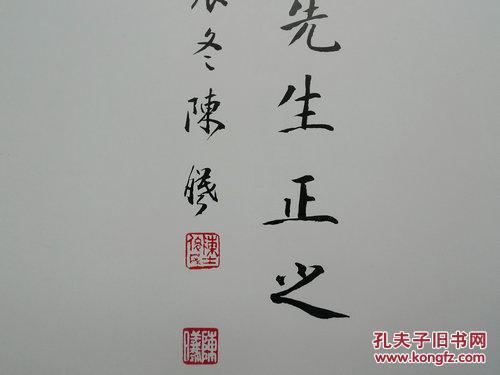 先生正之
冬陳曦
孔夫子旧书网
www.kongfz.com